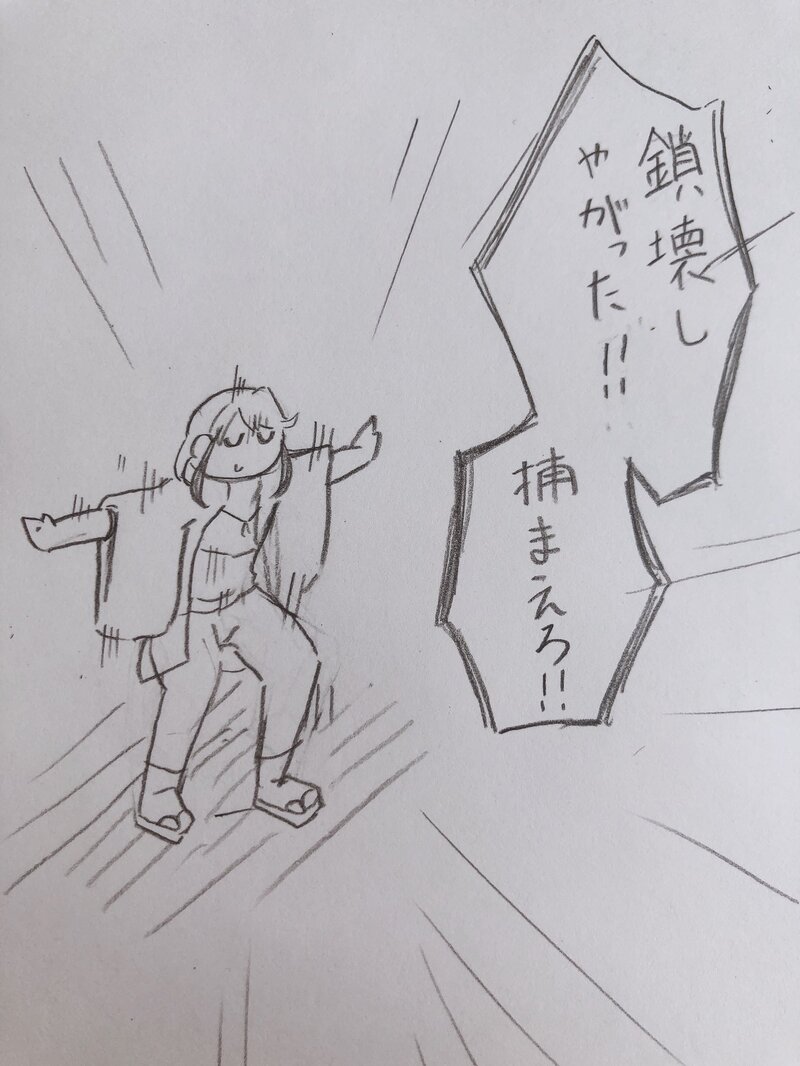 鎖壊し
やがった!!
捕まえろ!!